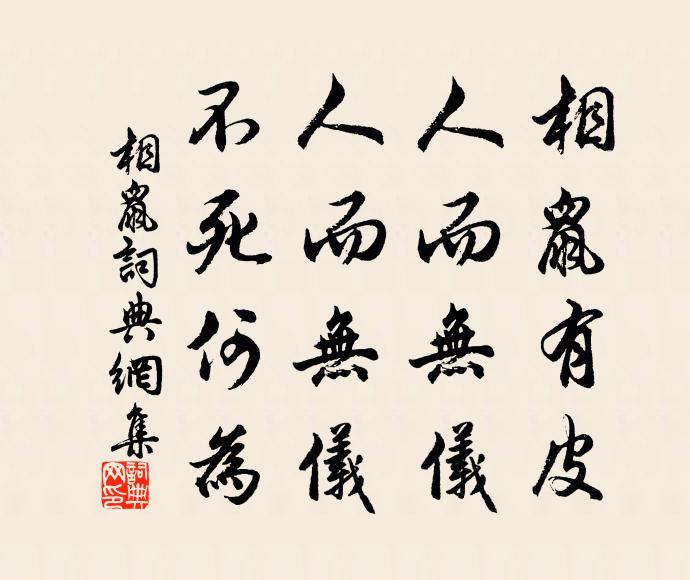 相鼠有皮
人而無儀
人而無儀
不死何為
相鼠詞典網集
詞典网印